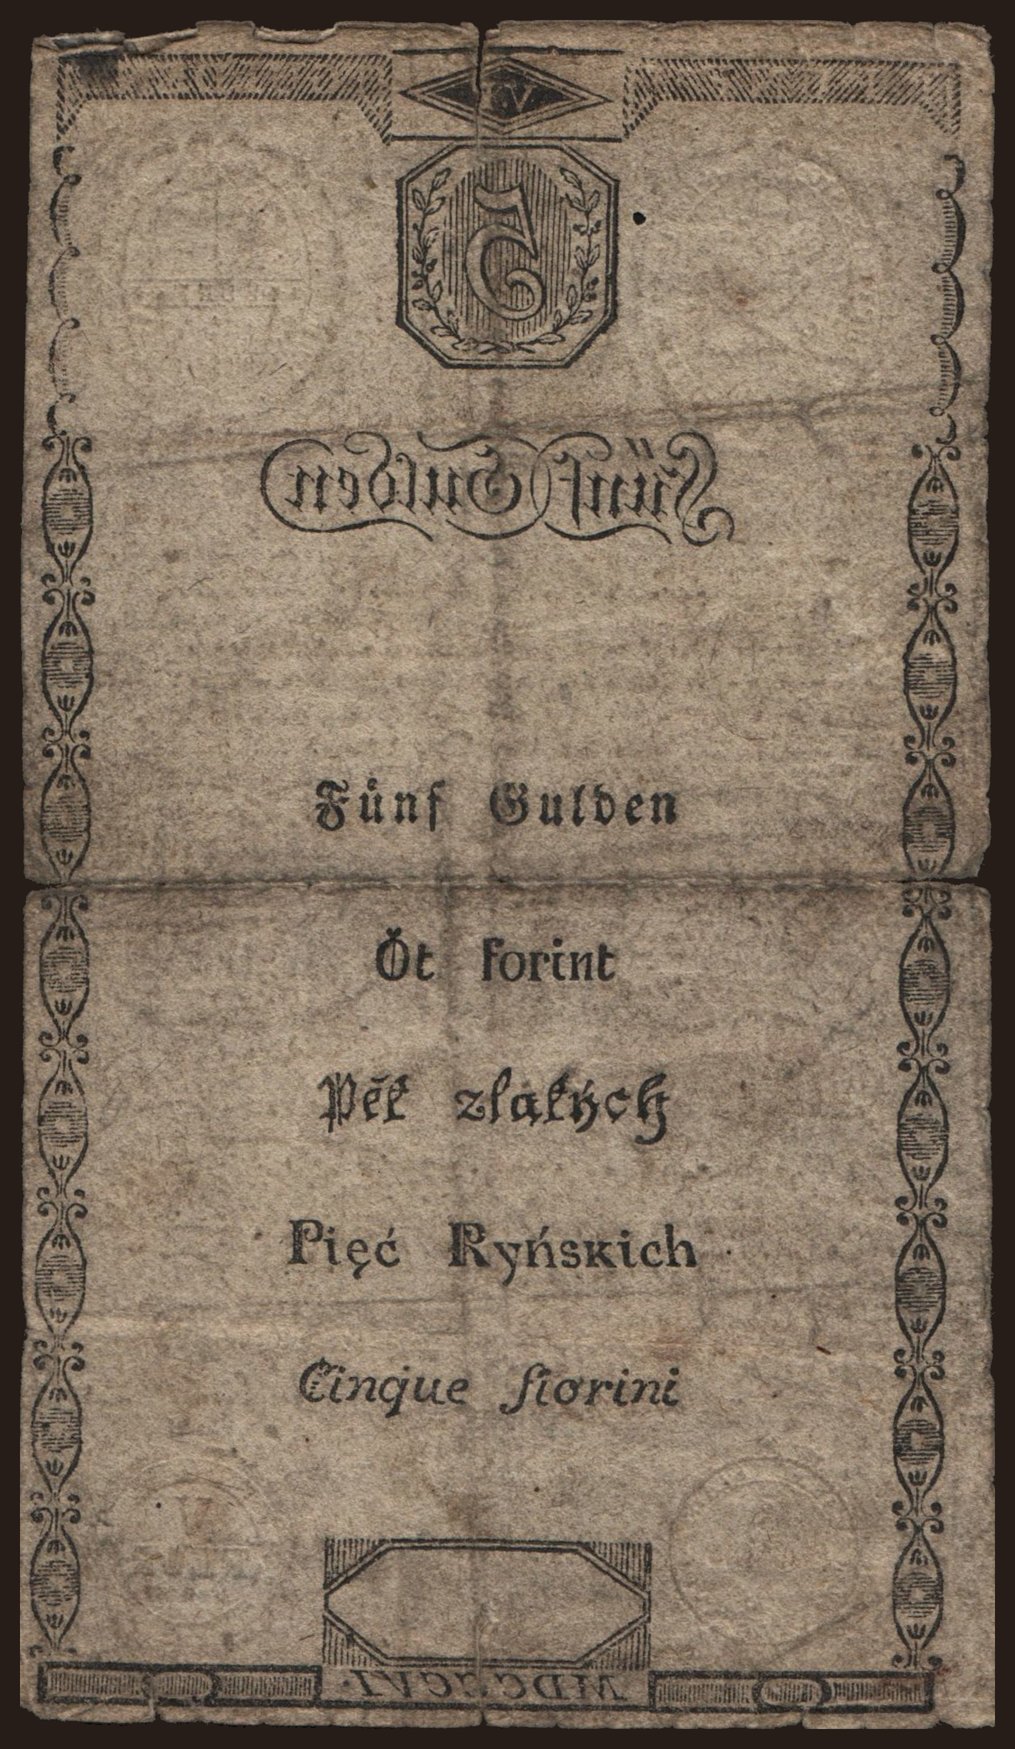 V
5
Fünf Gulden
Fünf Gulden
Öt forint
Pět zlatých
Pięć Ryńskich
Cinque fiorini